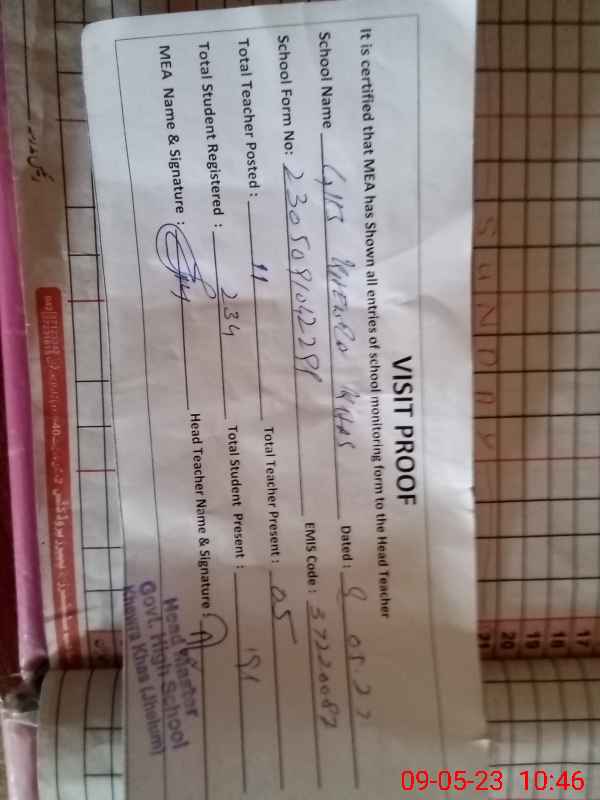 VISIT PROOF
It is certified that MEA has Shown all entries of school monitoring form to the Head Teacher
School Name GHS KHEWRA KHAS Dated : 9 05.23
School Form No: 2305091042291 EMIS Code : 37220087
Total Teacher Posted : 11 Total Teacher Present : 05
Total Student Registered : 234 Total Student Present : 191
MEA Name & Signature : Head Teacher Name & Signature :
Head Master
Govt. High School
Khewra Khas (Jhelum)
SUNDAY
17
18
19
20
21
09-05-23 10:46